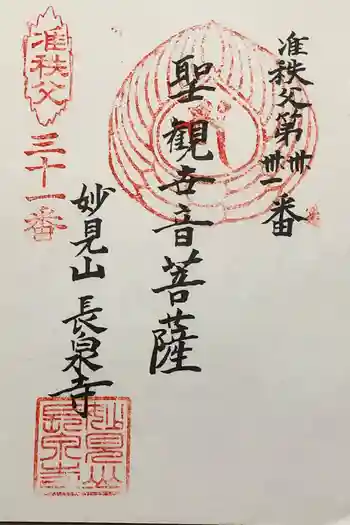 准秩父第卅一番
聖觀世音菩薩
妙見山 長泉寺
准秩父
三十一番
妙見山
長泉寺